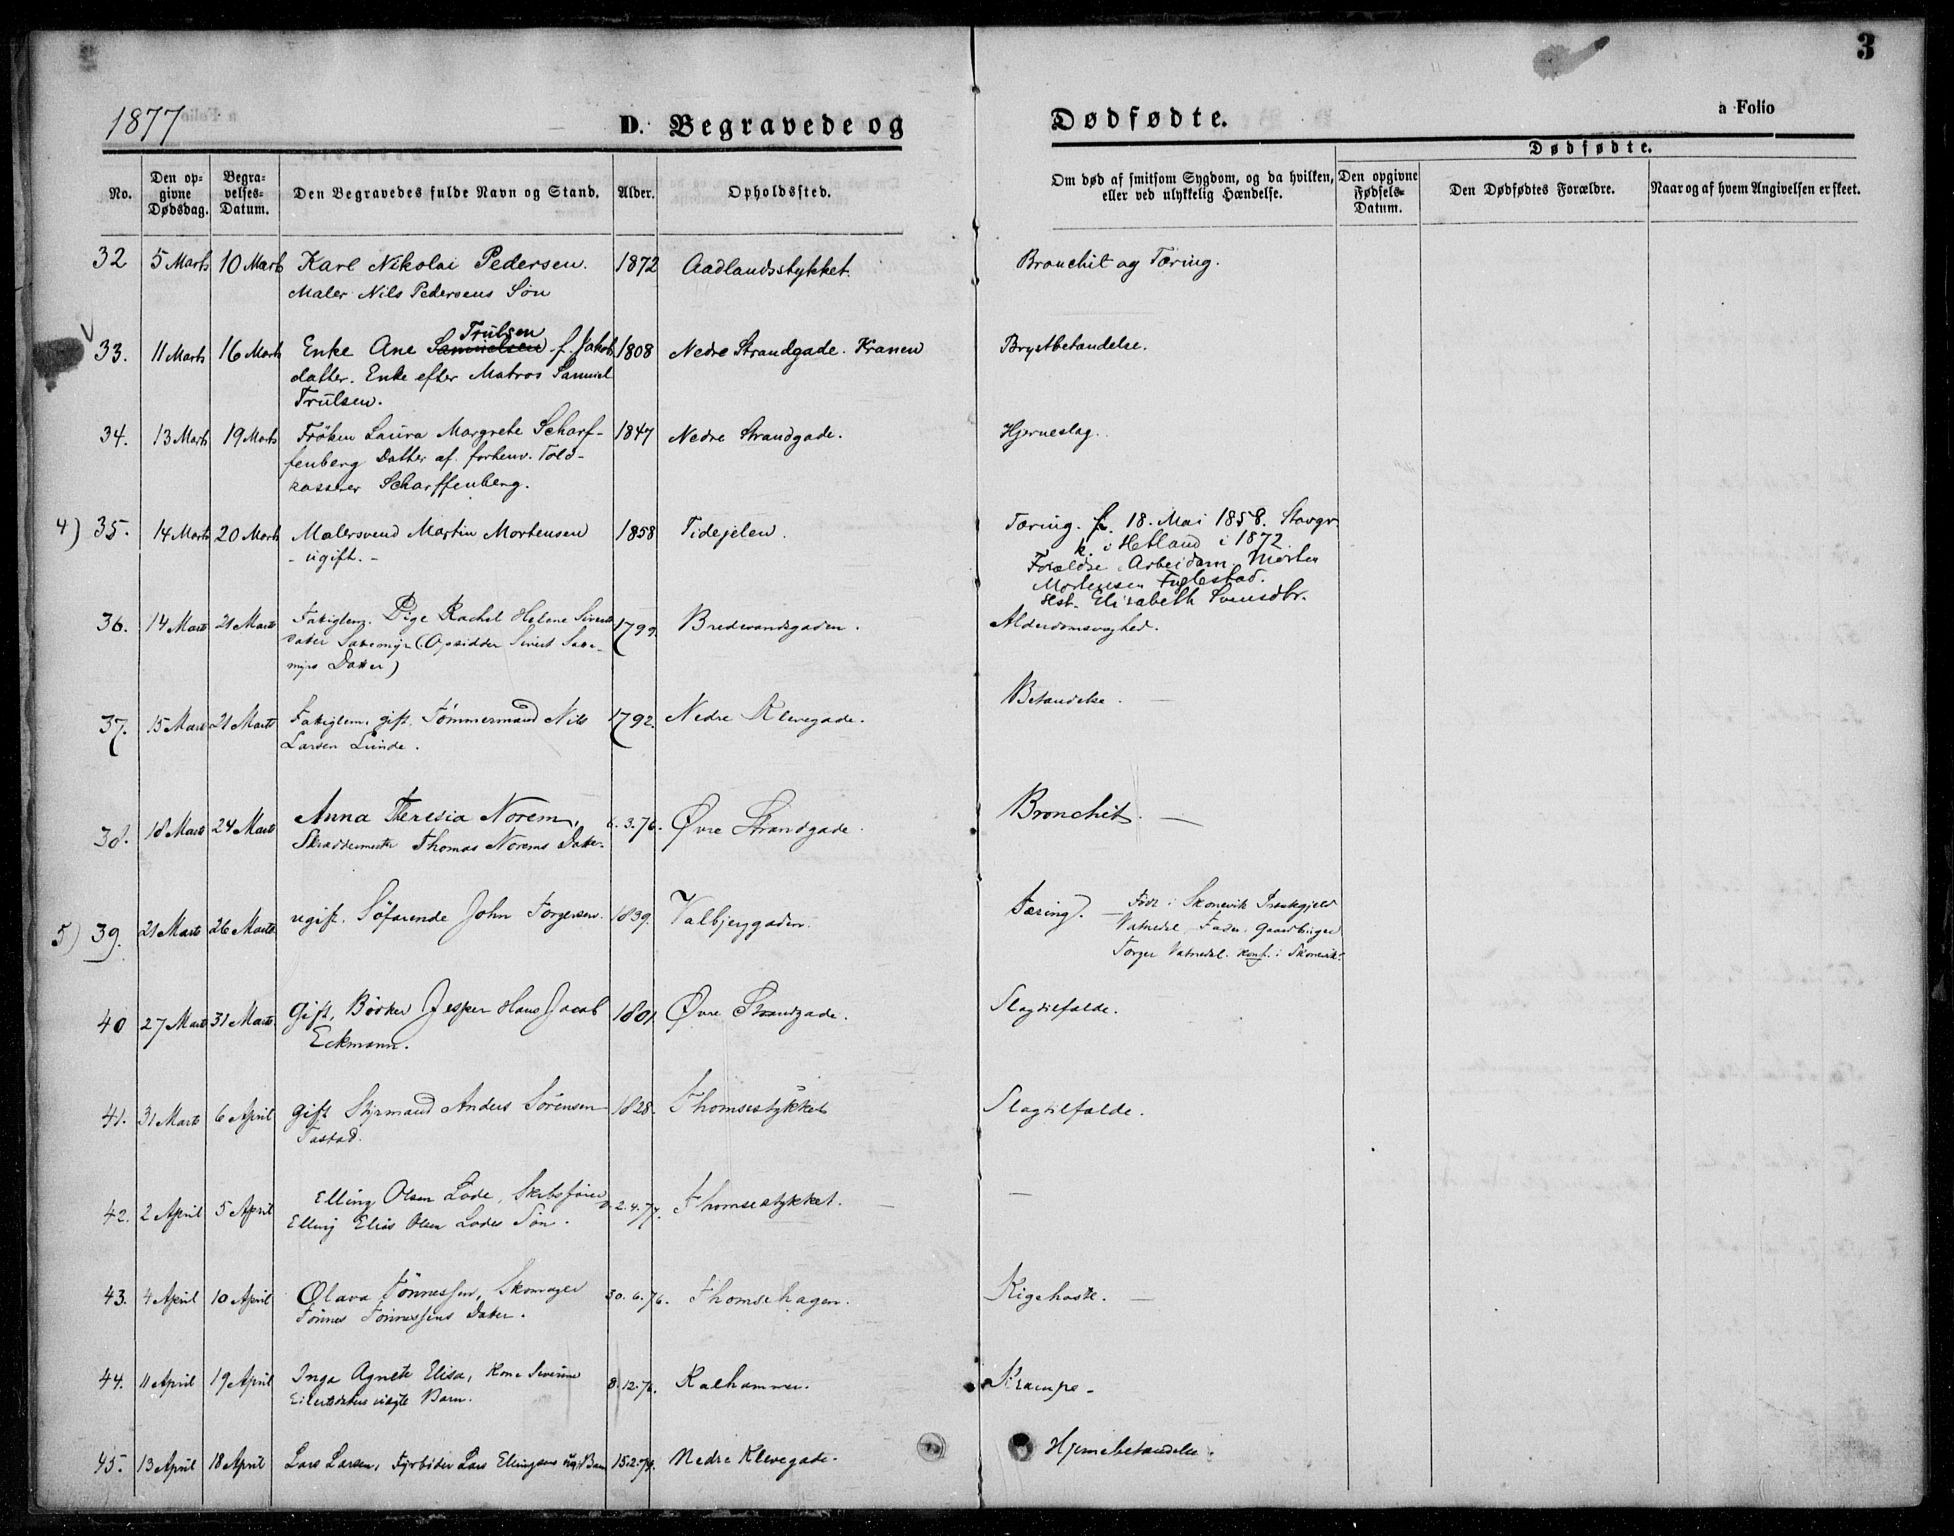 3
1877 D. Begravede og Dødfødte. a Folio
Dødfødte.
No. Den opgivne Dødsdag. Begravelses-Datum. Den Begravedes fulde Navn og Stand. Alder. Opholdssted. Om død af smitsom Sygdom, og da hvilken, eller ved ulykkelig Hændelse. Den opgivne Fødsels-Datum. Den Dødfødtes Forældre. Naar og af hvem Angivelsen er skeet.
32 5 Marts 10 Marts Karl Nikolai Pedersen. 1872 Aadlandsstykket. Bronchit og Tæring.
Maler Nils Pedersens Søn
Trulsen
33. 11 Marts 16 Marts Enke Ane Samuelsen f. Jakob 1808 Nedre Strandgade. Kranen Brystbetændelse.
datter. Enke efter Matros Samuel
Trulsen.
34. 13 Marts 19 Marts Frøken Laura Margrete Scharf- 1847 Nedre Strandgade. Hjerneslag.
fenberg Datter af forhenv. Told-
kasserer Scharffenberg.
4) 35. 14 Marts 20 Marts Malersvend Martin Mortensen 1858 Tidejelen. Tæring. f. 18. Mai 1858. Stavgr
- ugift. - k. i Hetland i 1872.
Forældre Arbeidsm. Morten
Mortensen Fuglestad.
Hst. Elisabeth Svensdtr.
36. 14 Marts 21 Marts Fatiglem. Pige Rachel Helene Siverts 1799. Bredevandsgaden. Alderdomssvaghed.
datter (Opsidder Sivert
Datter)
37. 15 Marts 21 Marts Fatiglem, gift. Tømmermand Nils 1792. Nedre Klevegade. Betændelse. —
Larsen Lunde.
38. 18 Marts 24 Marts Anna Theresia Norem, 6.3.76. Øvre Strandgade. Bronchit. —
Skræddermester Thomas Norems Datter.
5) 39. 21 Marts 26 Marts ugift. Søfarende John Torgersen. 1839. Valbjerggaden. Tæring. — Født i Skonevik Præstegjeld
Vatnedal. Fader. Gaardbruger
Torger Vatnedal. konf. i Skonevik.
40 27 Marts 31 Marts Gift, Bødker Jesper Hans Jacob 1801. Øvre Strandgade. Slagtilfælde.
Eckmann.
41. 31 Marts 6 April gift Styrmand Anders Sørensen 1828. Thomsestykket Slagtilfælde.
Tastad.
42. 2 April 5 April Elling Olsen Lode, Skibsfører 2.4.77. Thomsestykket. —
Elling Elias Olsen Lodes Søn.
43. 4 April 10 April Olava Tønnessen, Skomager 30.6.76. Thomsehagen. Kighoste. —
Tønnes Tønnessens Datter.
44. 11 April 19 April Inga Agnete Elisa, Kone Severine 8.12.76. Kalhammer. Krampe -
Eilertsdatters uægte Barn.
45. 13 April 18 April Lars Larsen, Fyrbøder Lars Ellingsens Barn Nedre Klevegade. Hjernebetændelse.